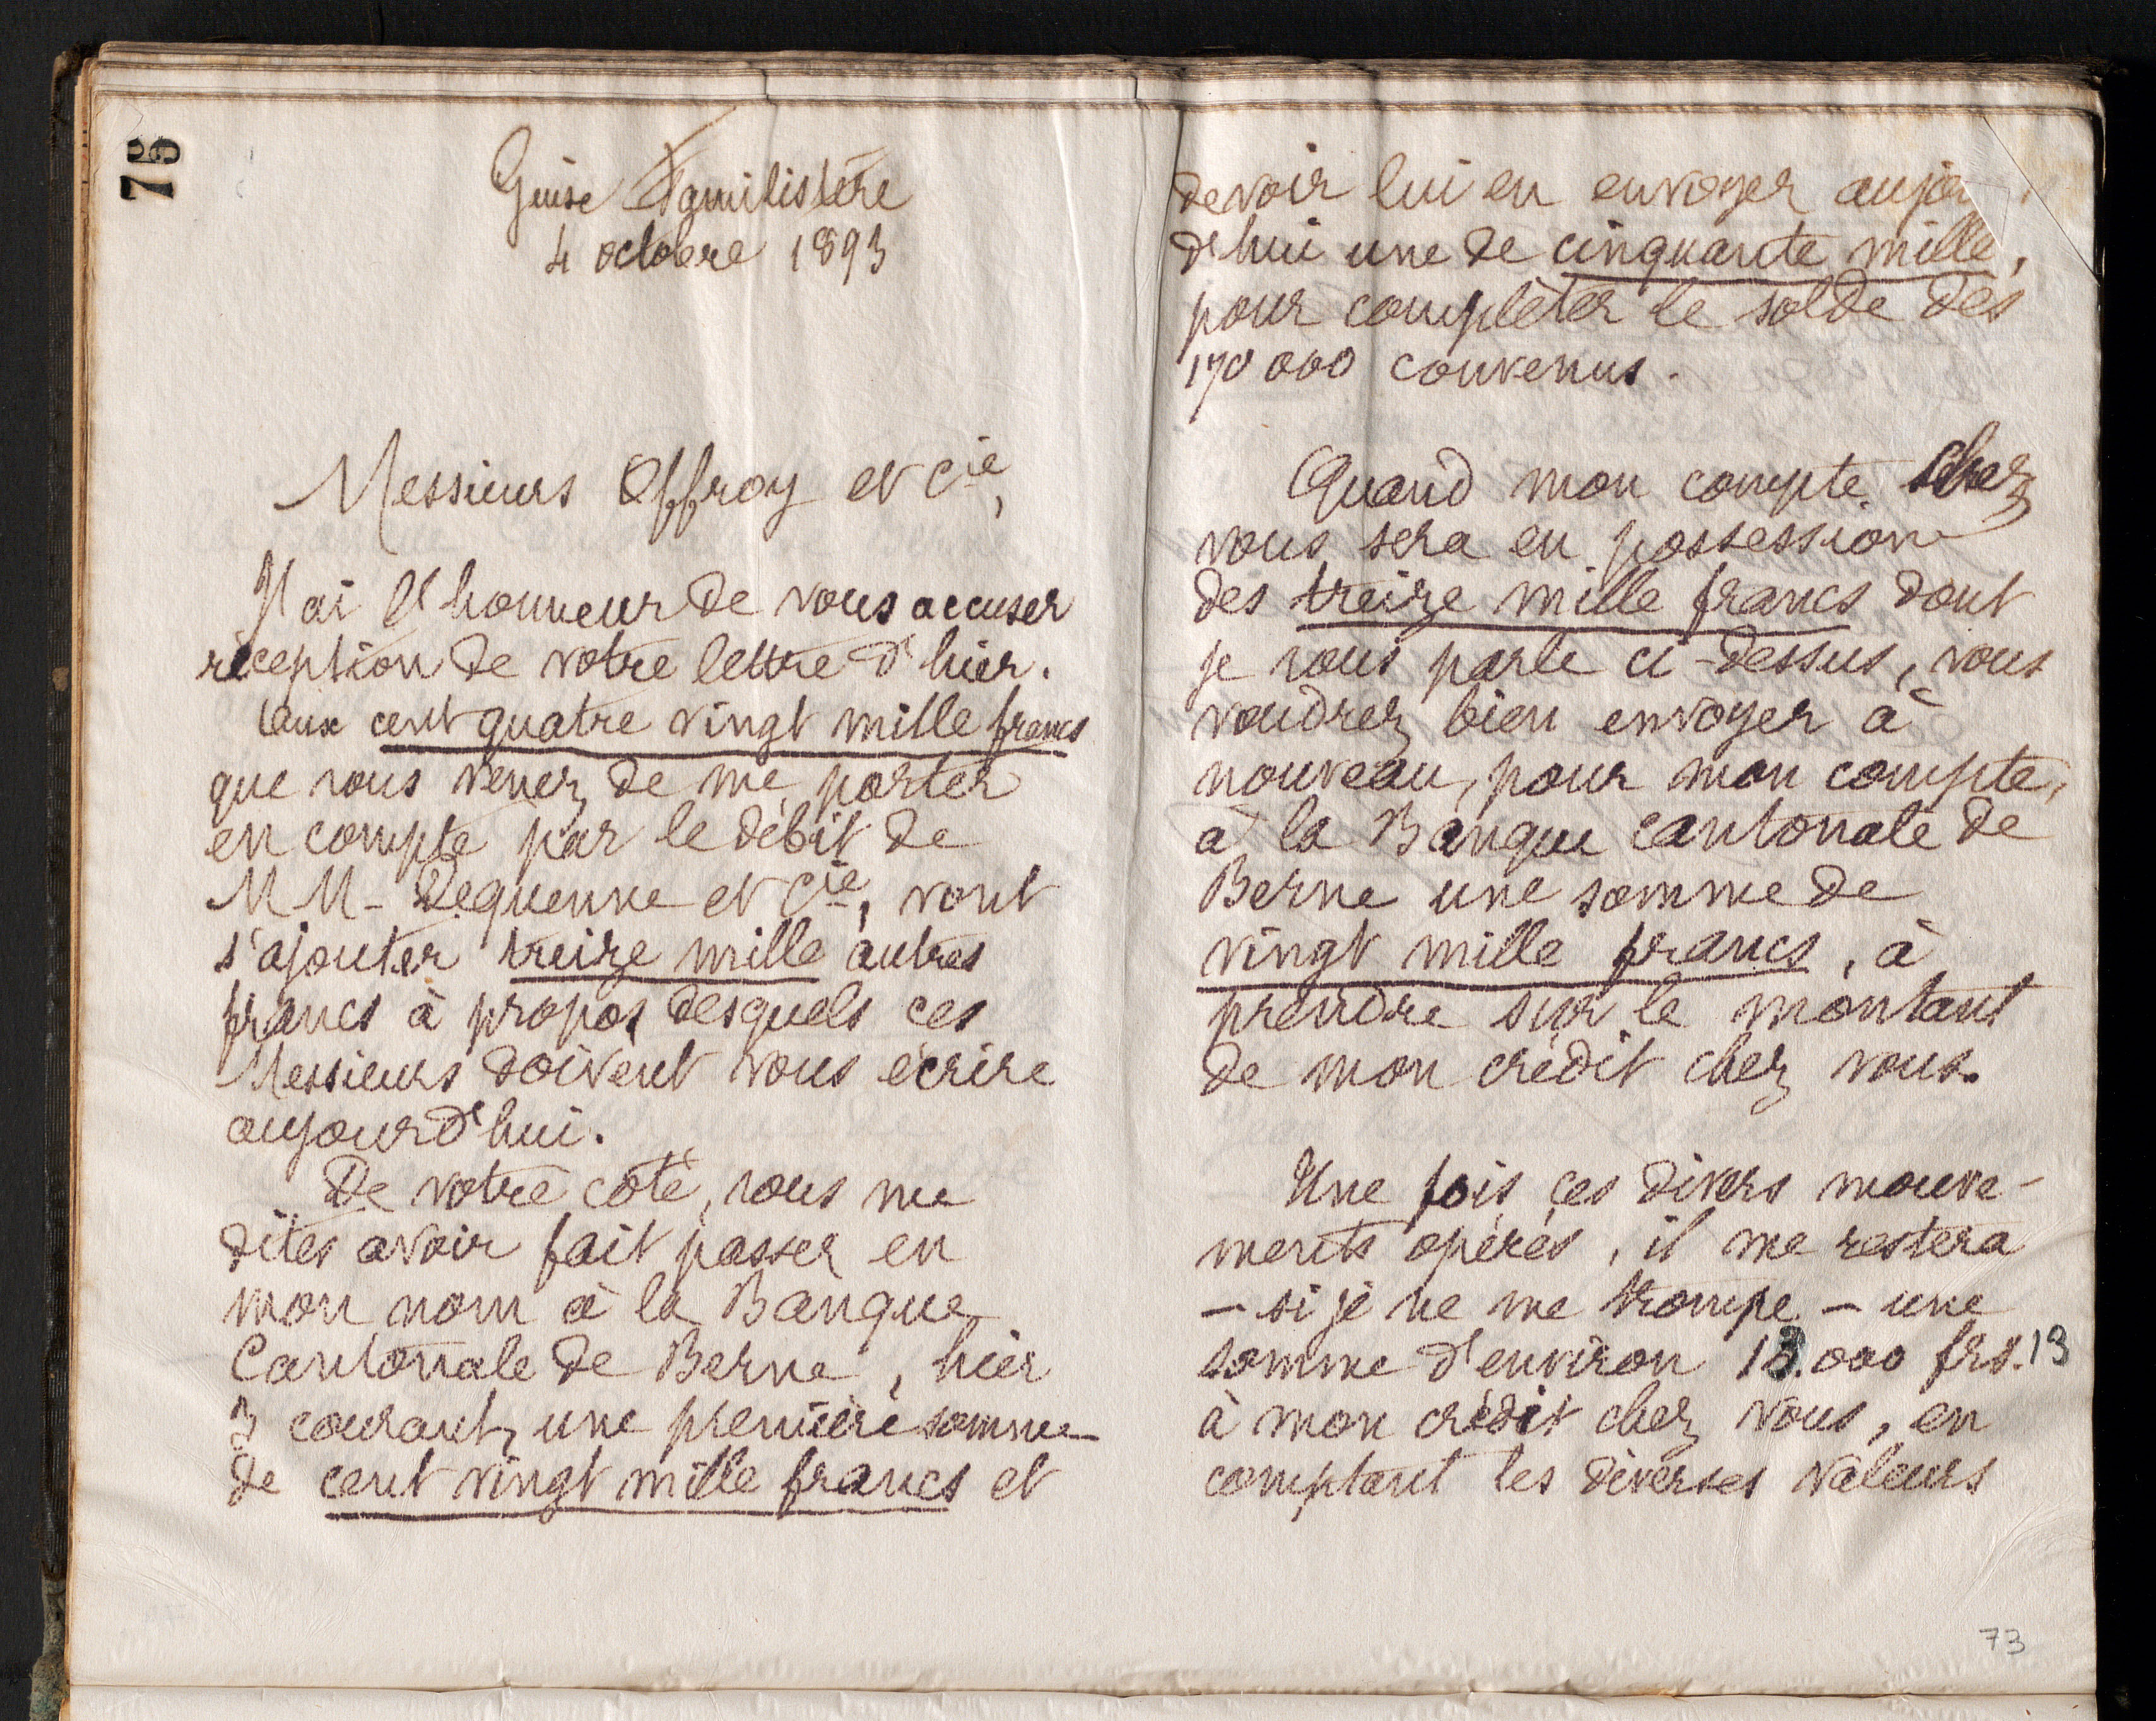 76
Guise Familistère
4 octobre 1893
Messieurs Offroy et Cie,
J'ai l'honneur de vous accuser
réception de votre lettre d'hier.
Aux cent quatre vingt mille francs
que vous venez de me porter
en compte par le débit de
MM- Dequenne et Cie, vont
s'ajouter treize mille autres
francs à propos desquels ces
Messieurs doivent vous écrire
aujourd'hui.
De votre côté, vous me
dites avoir fait passer en
mon nom à la Banque
Cantonale de Berne, hier
3 courant, une première somme
de cent vingt mille francs et
devoir lui en envoyer aujo
d'hui une de cinquante mille,
pour compléter le solde des
170 000 convenus.
Quand mon compte chez
vous sera en possession
des treize mille francs dont
je vous parle ci-dessus, vous
voudrez bien envoyer à
nouveau, pour mon compte,
à la Banque cantonale de
Berne une somme de
vingt mille francs, à
prendre sur le montant
de mon crédit chez vous.
Une fois ces divers mouve-
ments opérés, il me restera
- si je ne me trompe - une
somme d'environ 13.000 frs. 13
à mon crédit chez vous, en
comptant les diverses valeurs
73